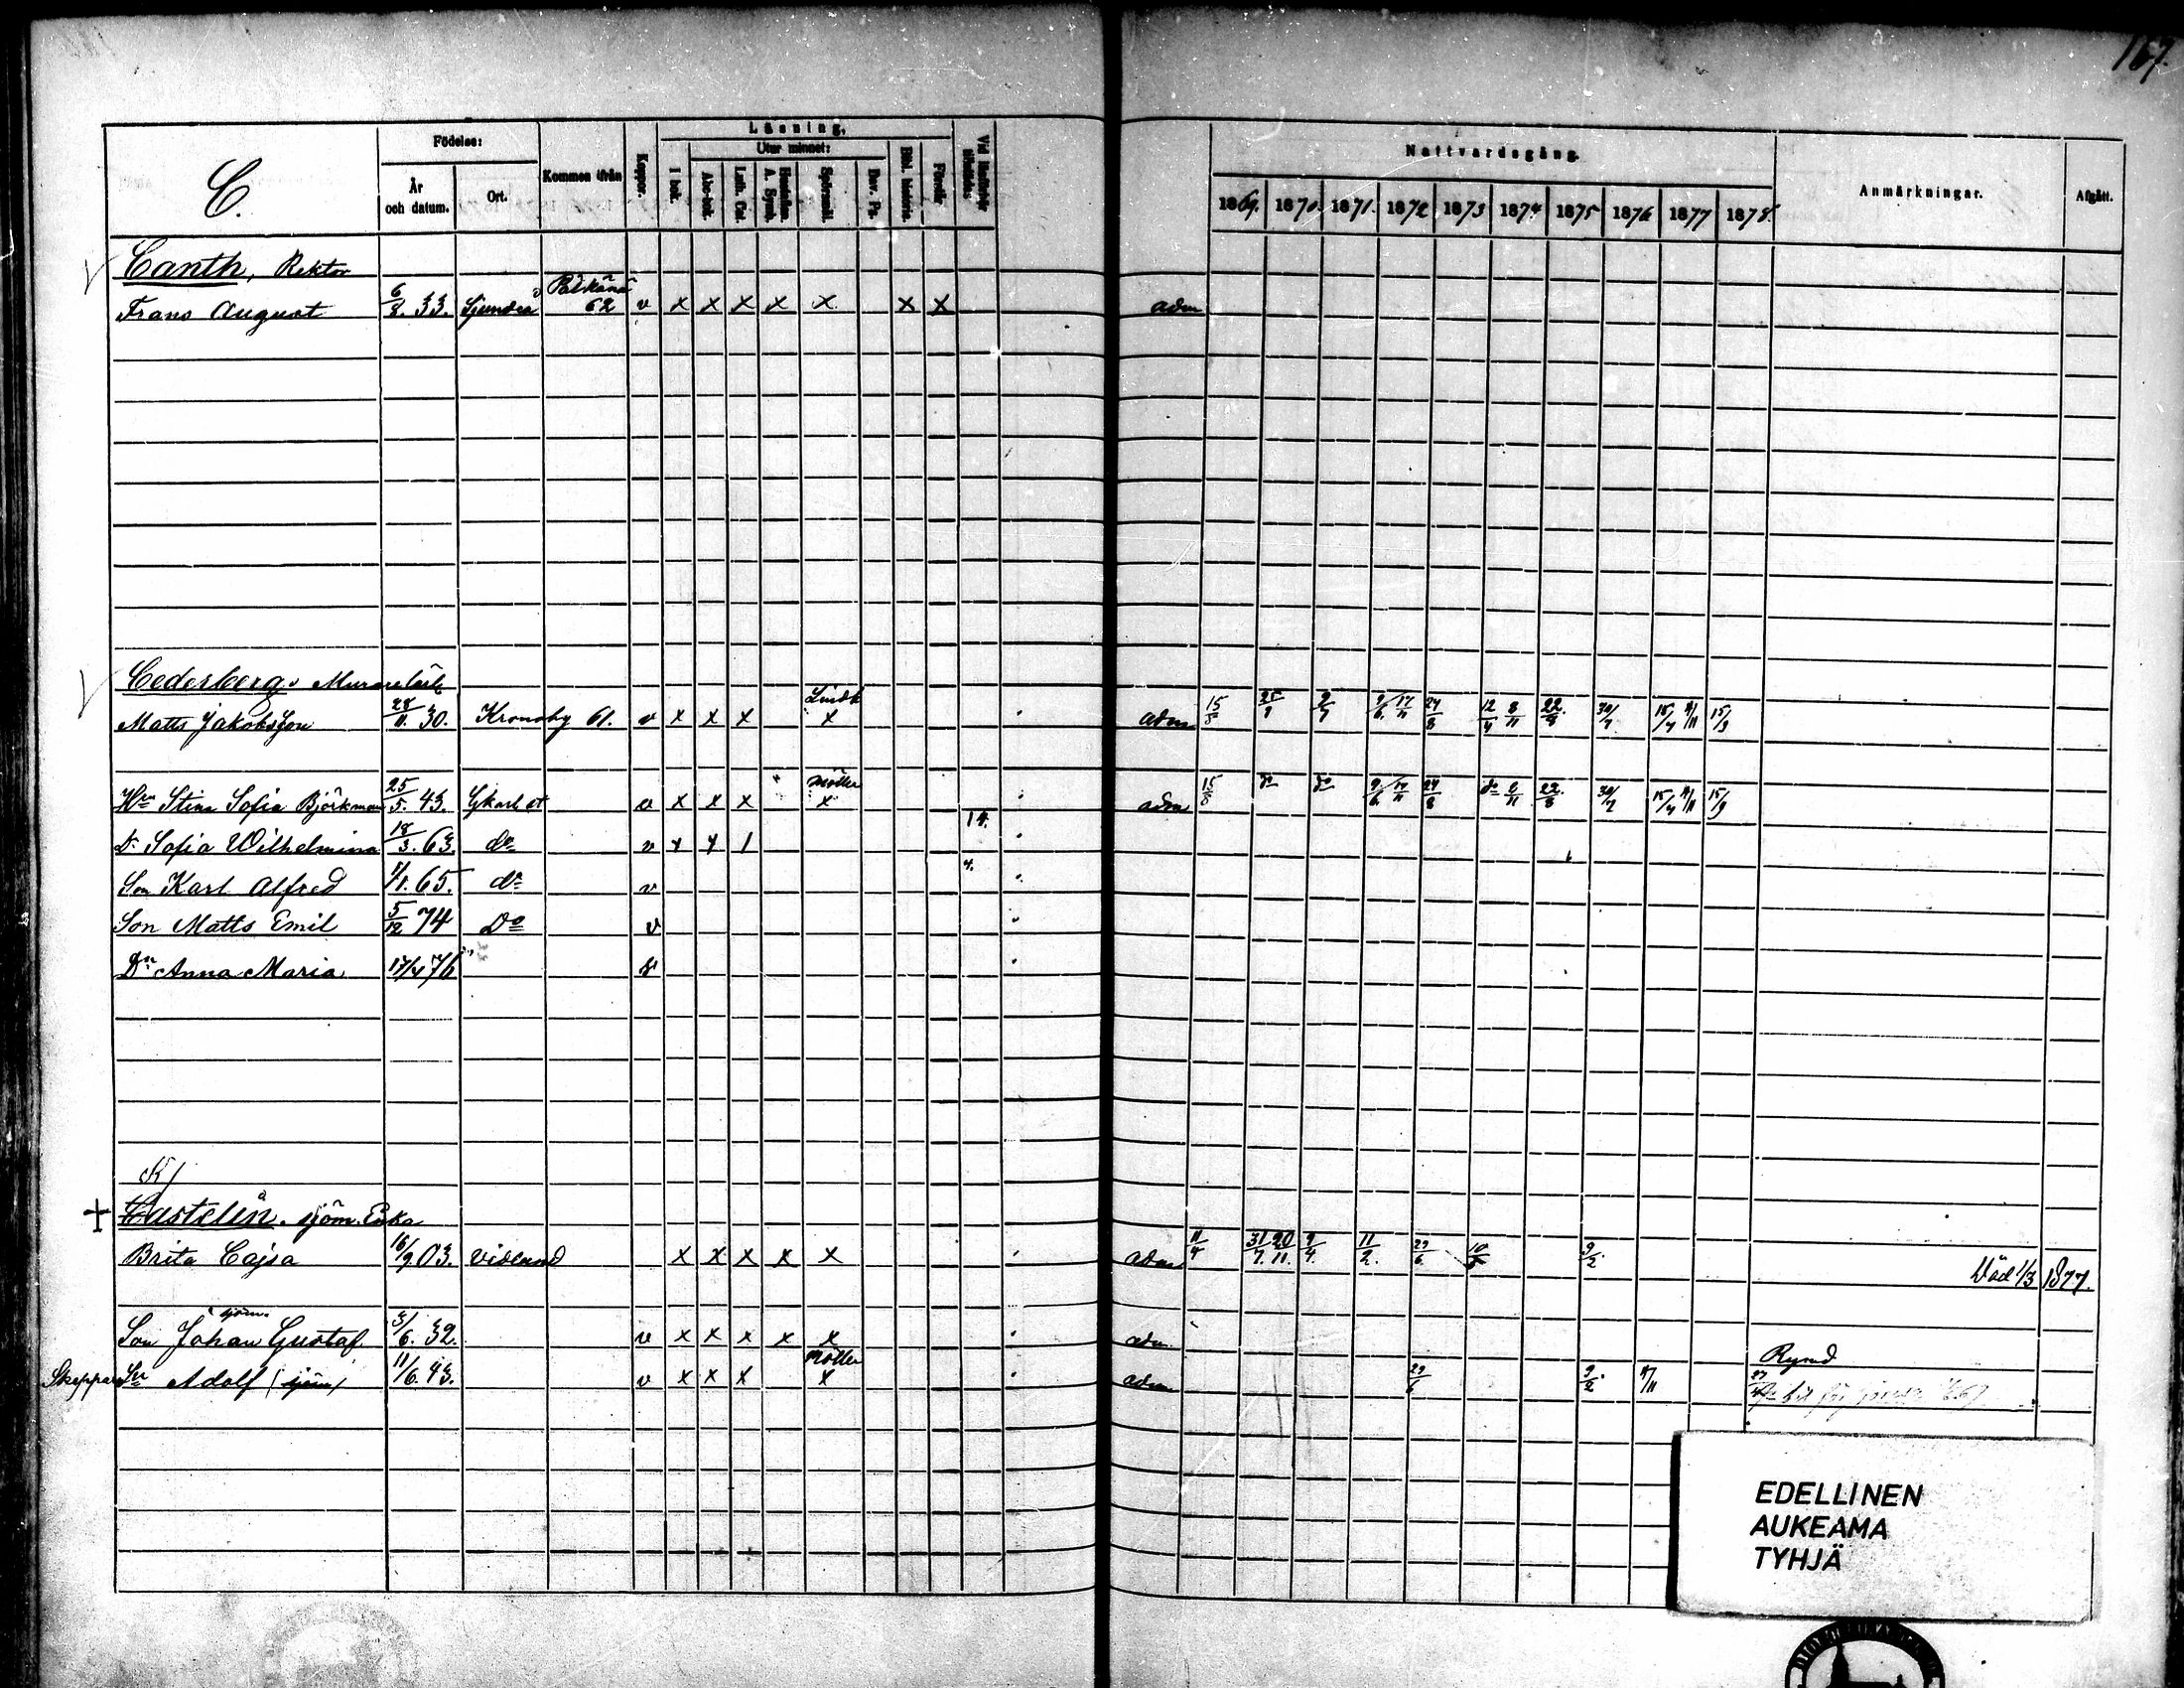 167.
C.
Födelse:
År och datum.
Ort.
Kommen ifrån
Koppor.
Läsning,
I bok.
Utur minnet:
Abc-bok.
Luth. Cat.
Hustaflan. A. Symb.
Spörsmål.
Dav. Ps.
Bibl. historia.
Förstår
Nattvardsgång.
1869. 1870. 1871. 1872 1873 1874 1875 1876 1877 1878.
Anmärkningar.
Afgått.
Canth, Rektor
Frans August 6/8. 33. Sjundeå Pälkäne 62 v x x x x x x x adm
Cederberg, Muraretärl
Matts Jakobsson 28/11. 30. Kronoby 61. v x x x Lindh x adm 15/8
Hru Stina Sofia Björkman 25/5. 43. Gkarl st v x x x Möller x adm 15/8 do do
Dr Sofia Wilhelmina 18/3. 63. do v 14.
Son Karl Alfred 1/1. 65. do v 4.
Son Matts Emil 5/12 74 Do v
Dr Anna Maria 17/4 76 v
K/
+ Castelin. sjöm. Enka
Brita Cajsa 16/9 03. Vidlund x x x x x adm 11/4 31/7. 20/11. 9/4. 11/2. 9/2. Död 1/3 1877.
sjöm.
Son Johan Gustaf 3/6. 32. v x x x x x adm
Skeppare Sn Adolf (sjöm) 11/6. 43. v x x x Möller x adm 9/2. Rymd
EDELLINEN
AUKEAMA
TYHJÄ